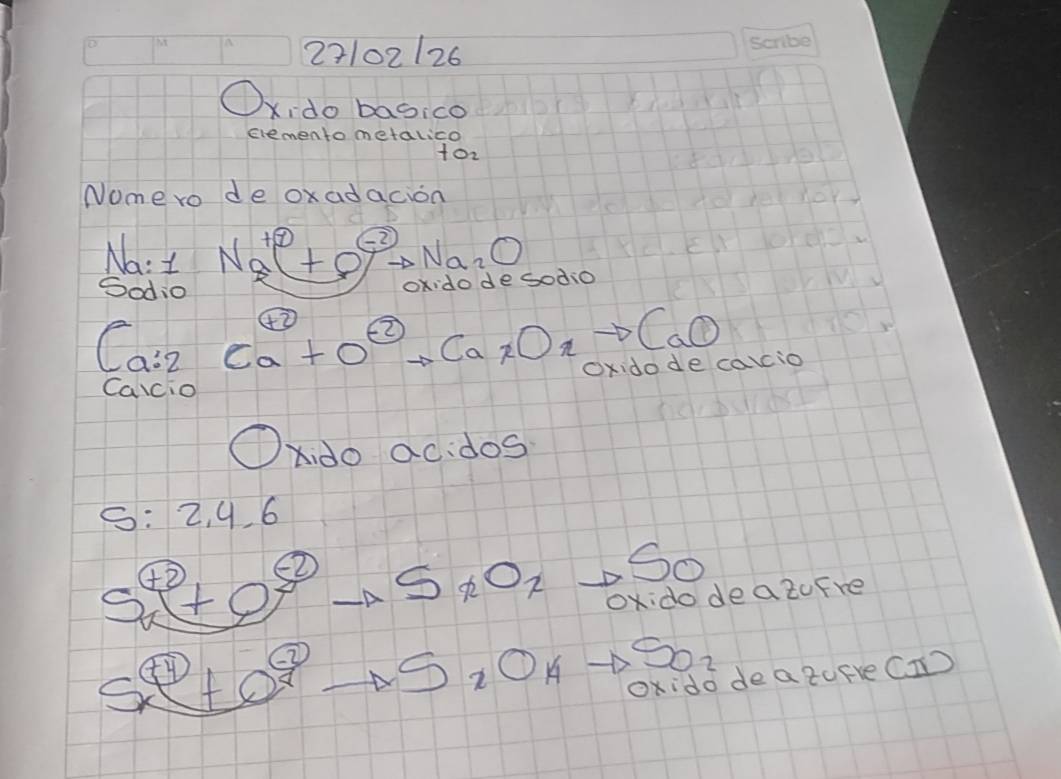 D M A 27/02/26 Scribe
Oxido basico
elemento metalico
+O₂
Nomero de oxadación
Na: 1 Na⁺¹ + O⁻² → Na₂O
Sodio oxido de sodio
Ca: 2 Ca⁺² + O⁻² → Ca₂O₂ → CaO
Calcio oxido de calcio
Oxido acidos
S: 2, 4, 6
S⁺² + O⁻² → S₂O₂ → SO
oxido de azufre
S⁺⁴ + O⁻² → S₂O₄ → SO₂
oxido de azufre (II)